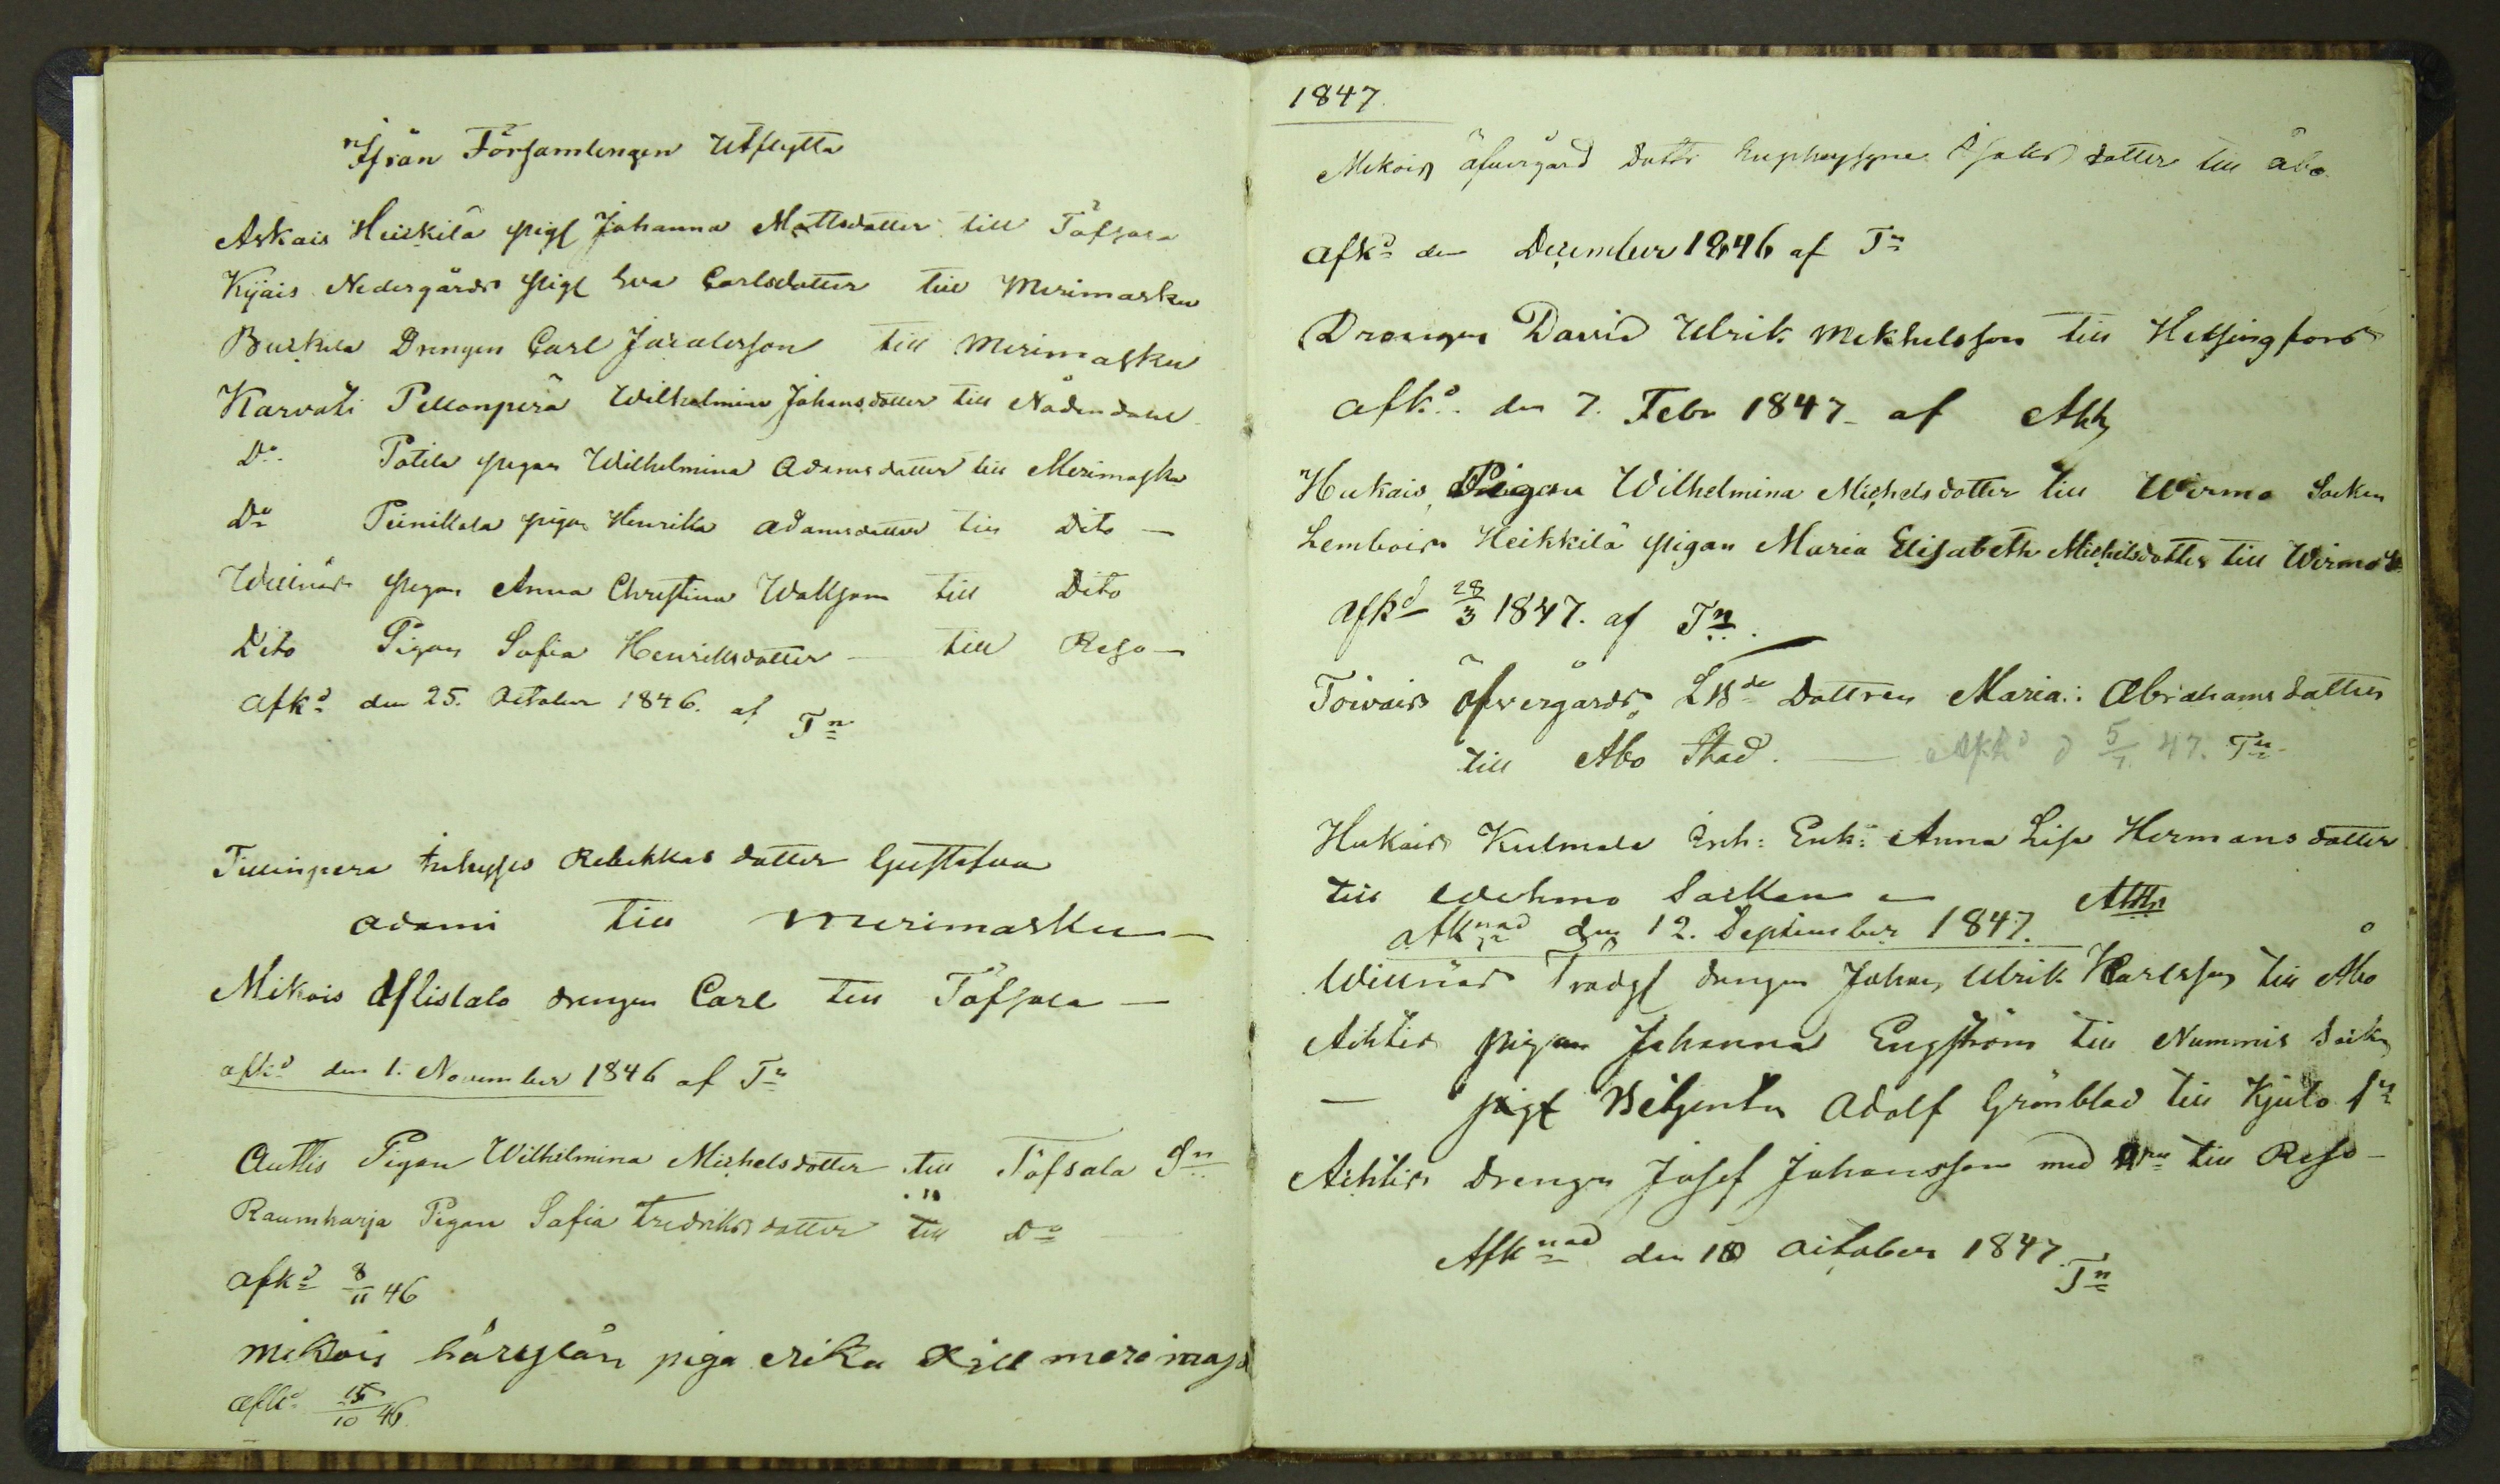 Ifrån Församlingen Utflytta
Askais Heickilä pig Johanna Mattsdotter till Töfsala
Kijais Nedergårds pig Eva Carlsdotter till Merimasku
Burkila Drengen Carl Jacalesson till Merimasku
Karvati Pellonperä Wilhelmina Johansdotter till Nådendahl
Do Potila pigan Wilhelmina Adamsdotter till Merimasku
Do Peinikkala pigan Henrika Adamsdotter till Dito —
Willnäs pigan Anna Christina Wallsom till Dito
Dito Pigan Sofia Henriksdotter — till Reso —
Afkd den 25. October 1846. af Tn
Tillinpera Rebekkas dotter Gustafva
Adami till Merimasku —
Mikois Aflistalo drengen Carl till Töfsala —
afkd den 1. November 1846 af Tn
Autlis Pigan Wilhelmina Michelsdotter till Töfsala Sn
Raumharja Pigan Sofia Fredriksdotter till Do
Afkd 8/11 46
mikois piga erika till merimas
afkd 15/10 46
1847.
Mikois Öfvergård dottr dotter till Åbo
Afkd den December 1846 af Tn
Drängen David Ulrik Mekhelsson till Helsingfors
Afkd. den 7. Febr 1847 af Ahh
Hukais, Pigan Wilhelmina Michelsdotter till Wirmo Socken
Lembois Heikkilä pigan Maria Elisabeth Michelsdotter till Wirmo
Afkd 28/3 1847. af Tn.
Toivais Öfvergårds Dottren Maria: Abrahamsdotter
till Åbo Stad. — Afkd d 5/7 47. Tn
Hukais Kulmala Inh: Enk: Anna Lisa Hermansdotter
till Wehmo Socken
afknad den 12. September 1847. Ahh
Willnäs Trädg drengen Johan Ulrik Karlsson till Åbo
Aihtis pigan Johanna Engström till Nummis Sock
— Betjenten Adolf Grönblad till Kjulo Sn
Aihtis Drengen Josef Johansson med till Reso —
Afknad den 10 October 1847. Tn